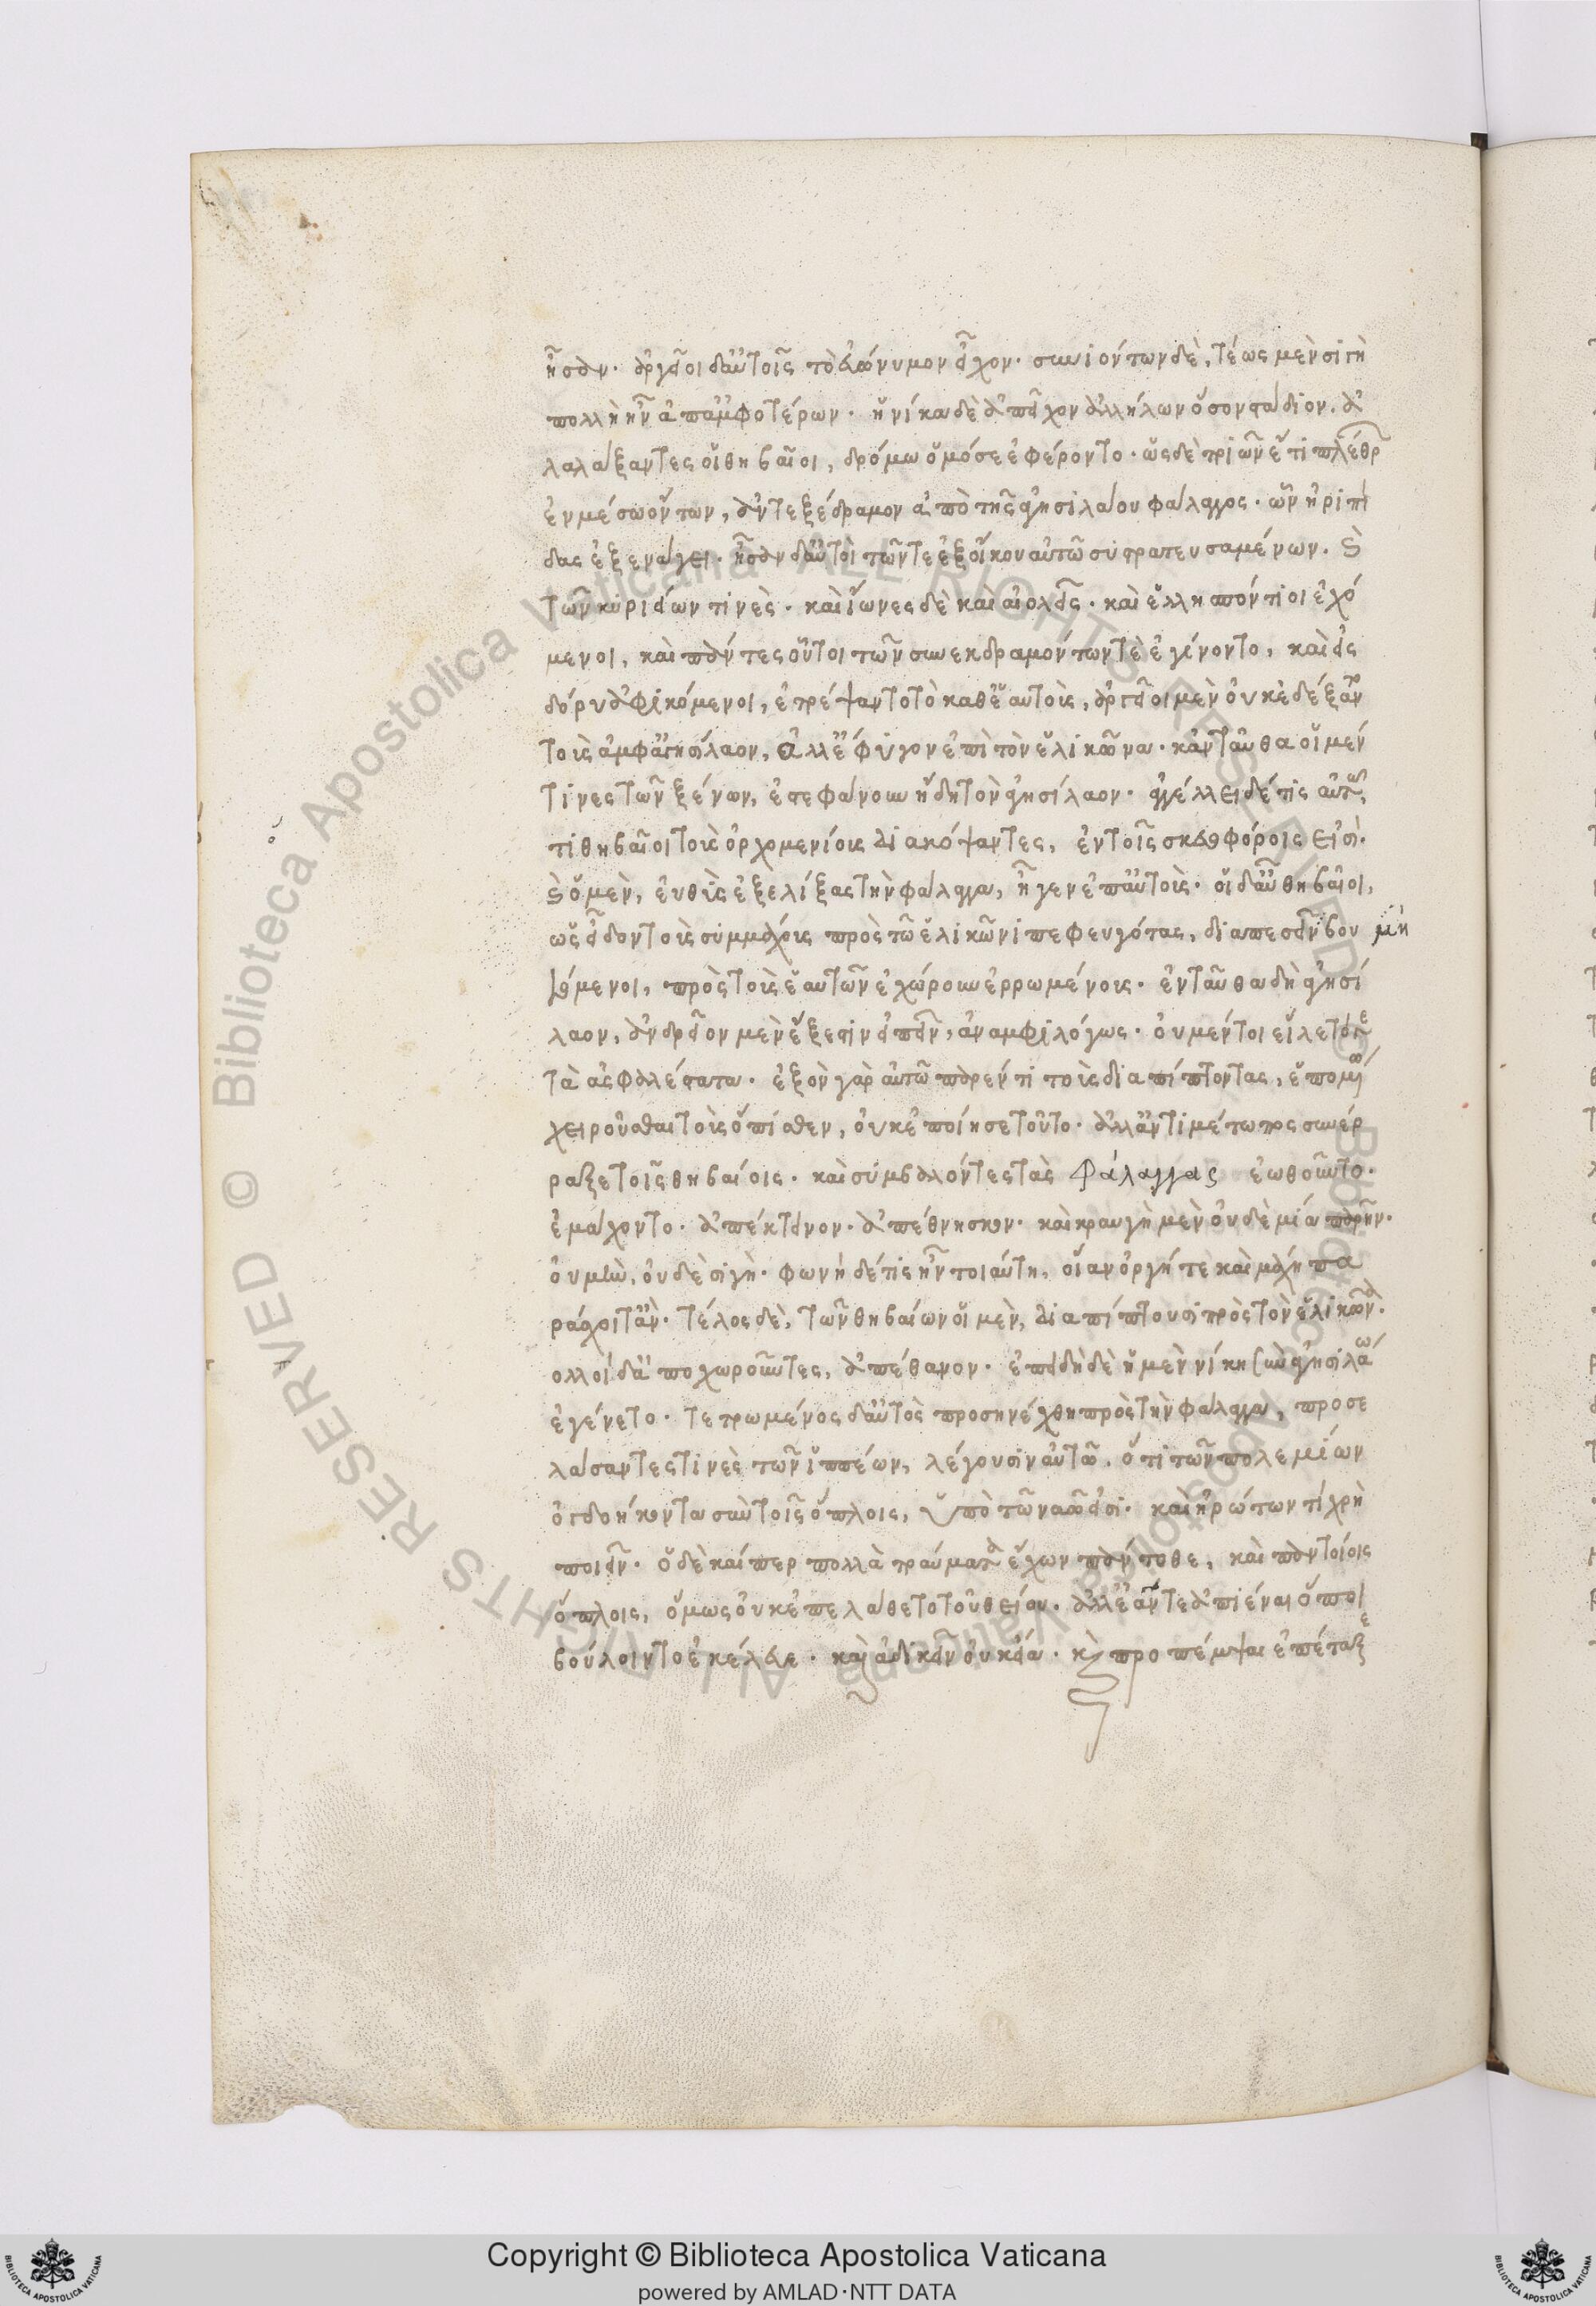 ἦσαν. ἀργεῖοι δ' αὐτοῖς τὸ εὐώνυμον εἶχον. συνιόντων δὲ, τέως μὲν σιγὴ
πολλὴ ἦν ἀπ' ἀμφοτέρων. ἡνίκα δὲ ἀπεῖχον ἀλλήλων ὅσον στάδιον. ἀ
λαλάξαντες οἱ θηβαῖοι, δρόμω ὁμόσε ἐφέροντο. ὡς δὲ τριῶν ἔτι πλέθρ
ἐν μέσω ὄντων, ἀντεξέδραμον ἀπὸ τῆς ἀγησιλάου φάλαγγος. ὧν ἡριπί
δας ἐξενάγει. ἦσαν δ' αὐτοὶ τῶν τε ἐξ οἴκου αὐτῶ συστρατευσαμένων. καὶ
τῶν κυρείων τινὲς. καὶ ἴωνες δὲ καὶ αἰολεῖς. καὶ ἑλλησπόντιοι ἐχό
μενοι, καὶ πάντες οὗτοι τῶν συνεκδραμόντων τὲ ἐγένοντο, καὶ εἰς
δόρυ ἀφικόμενοι, ἐτρέψαντο τὸ καθ' ἑαυτοὺς, ἀργεῖοι μὲν οὐκ ἐδέξαντο
τοὺς ἀμφ' ἀγησίλαον, ἀλλ' ἔφυγον ἐπὶ τὸν ἑλικῶνα. κἀνταῦθα οἱ μέν
τινες τῶν ξένων, ἐστεφάνουν ἤδη τὸν ἀγησίλαον. ἀγγέλλει δέ τις αὐτῶ,
τι θηβαῖοι τοὺς ὀρχομενίους διακόψαντες, ἐν τοῖς σκευοφόροις εἰσί.
καὶ ὁ μὲν, εὐθὺς ἐξελίξας τὴν φάλαγγα, ἦγεν ἐπ' αὐτοὺς. οἱ δ' αὖ θηβαῖοι,
ὡς εἶδον τοὺς συμμάχους πρὸς τῶ ἑλικῶνι πεφευγότας, διαπεσεῖν βου μὴ
λόμενοι, πρὸς τοὺς ἑαυτῶν ἐχώρουν ἐρρωμένους. ἐνταῦθα δὴ ἀγησί
λαον, ἀνδρεῖον μὲν ἔξεστιν εἰπεῖν, ἀναμφιλόγως. οὐ μέντοι εἵλετό γε
τὰ ἀσφαλέστατα. ἐξὸν γὰρ αὐτῶ παρέντι τοὺς διαπίπτοντας, ἑπομένω
χειροῦσθαι τοὺς ὄπισθεν, οὐκ ἐποίησε τοῦτο. ἀλλ' ἀντιμέτωπος συνέρ
ραξε τοῖς θηβαίοις. καὶ συμβαλόντες τὰς φάλαγγας ἐωθοῦντο.
ἐμάχοντο. ἀπέκτεινον. ἀπέθνησκον. καὶ κραυγὴ μὲν οὐδὲ μία παρῆν.
οὐ μὴν, οὐδὲ σιγὴ. φωνὴ δέ τις ἦν τοιαύτη, οἵαν ὀργή τε καὶ μάχη πα
ράσχοιτ' ἂν. τέλος δὲ, τῶν θηβαίων οἱ μὲν, διαπίπτουσι πρὸς τὸν ἑλικῶνα.
ολλοὶ δ' ἀποχωροῦντες, ἀπέθανον. ἐπειδὴ δὲ ἡ μὲν νίκη σὺν ἀγησιλάω
ἐγένετο. τετρωμένος δ' αὐτὸς προσηνέχθη πρὸς τὴν φάλαγγα, προσε
λάσαντες τινὲς τῶν ἱππέων, λέγουσιν αὐτῶ. ὅτι τῶν πολεμίων
ὀγδοήκοντα σὺν τοῖς ὅπλοις, ὑπὸ τῶ ναῶ εἰσι. καὶ ἠρώτων τί χρὴ
ποιεῖν. ὁ δὲ καίπερ πολλὰ τραύματα ἔχων πάντοθε, καὶ παντοίοις
ὅπλοις, ὅμως οὐκ ἐπελάθετο τοῦ θείου. ἀλλ' ἐᾶν τε ἀπιέναι ὅποι
βούλοιντο ἐκέλευε. καὶ ἀδικεῖν οὐκ εἴα. καὶ προπέμψαι ἐπέταξε